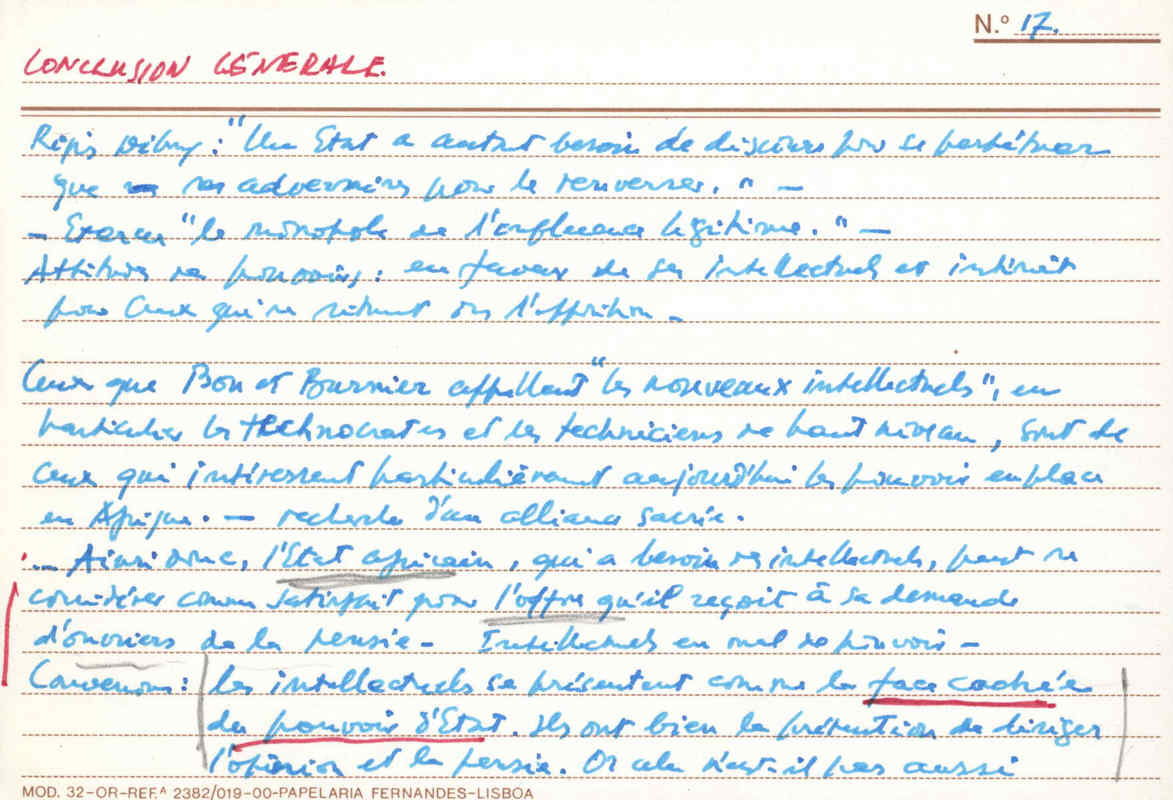 N.º 17.
CONCLUSION GÉNÉRALE.
Régis Debray : "Un Etat a autant besoin de discours pr se perpétuer
que ses adversaires pour le renverser." —
— Exercer "le monopole de l'influence légitime." —
Attitudes des pouvoirs : en faveur de ses intellectuels et
pour ceux qui se situent ds l'opposition —
Ceux que Bon et Burnier appellent "les nouveaux intellectuels", en
particulier les technocrates et les techniciens de haut niveau, sont de
ceux qui intéressent particulièrement aujourd'hui les pouvoirs en place
en Afrique. — recherche d'un alliance sacrée.
... Ainsi donc, l'Etat africain, qui a besoin des intellectuels, peut se
considérer comme satisfait pour l'offre qu'il reçoit à sa demande
d'ouvriers de la pensée — Intellectuels en mal de pouvoir —
Convenons : les intellectuels se présentent comme la face cachée
du pouvoir d'Etat. Ils ont bien la prétention de diriger
l'opinion et la pensée. Or cela n'est-il pas aussi
MOD. 32-OR-REF.ᴬ 2382/019-00-PAPELARIA FERNANDES-LISBOA